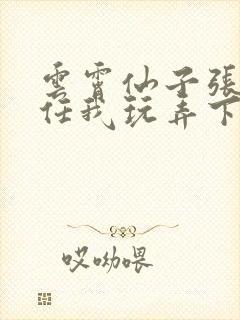 雲霄仙子張
任我玩弄下
哎呦喂